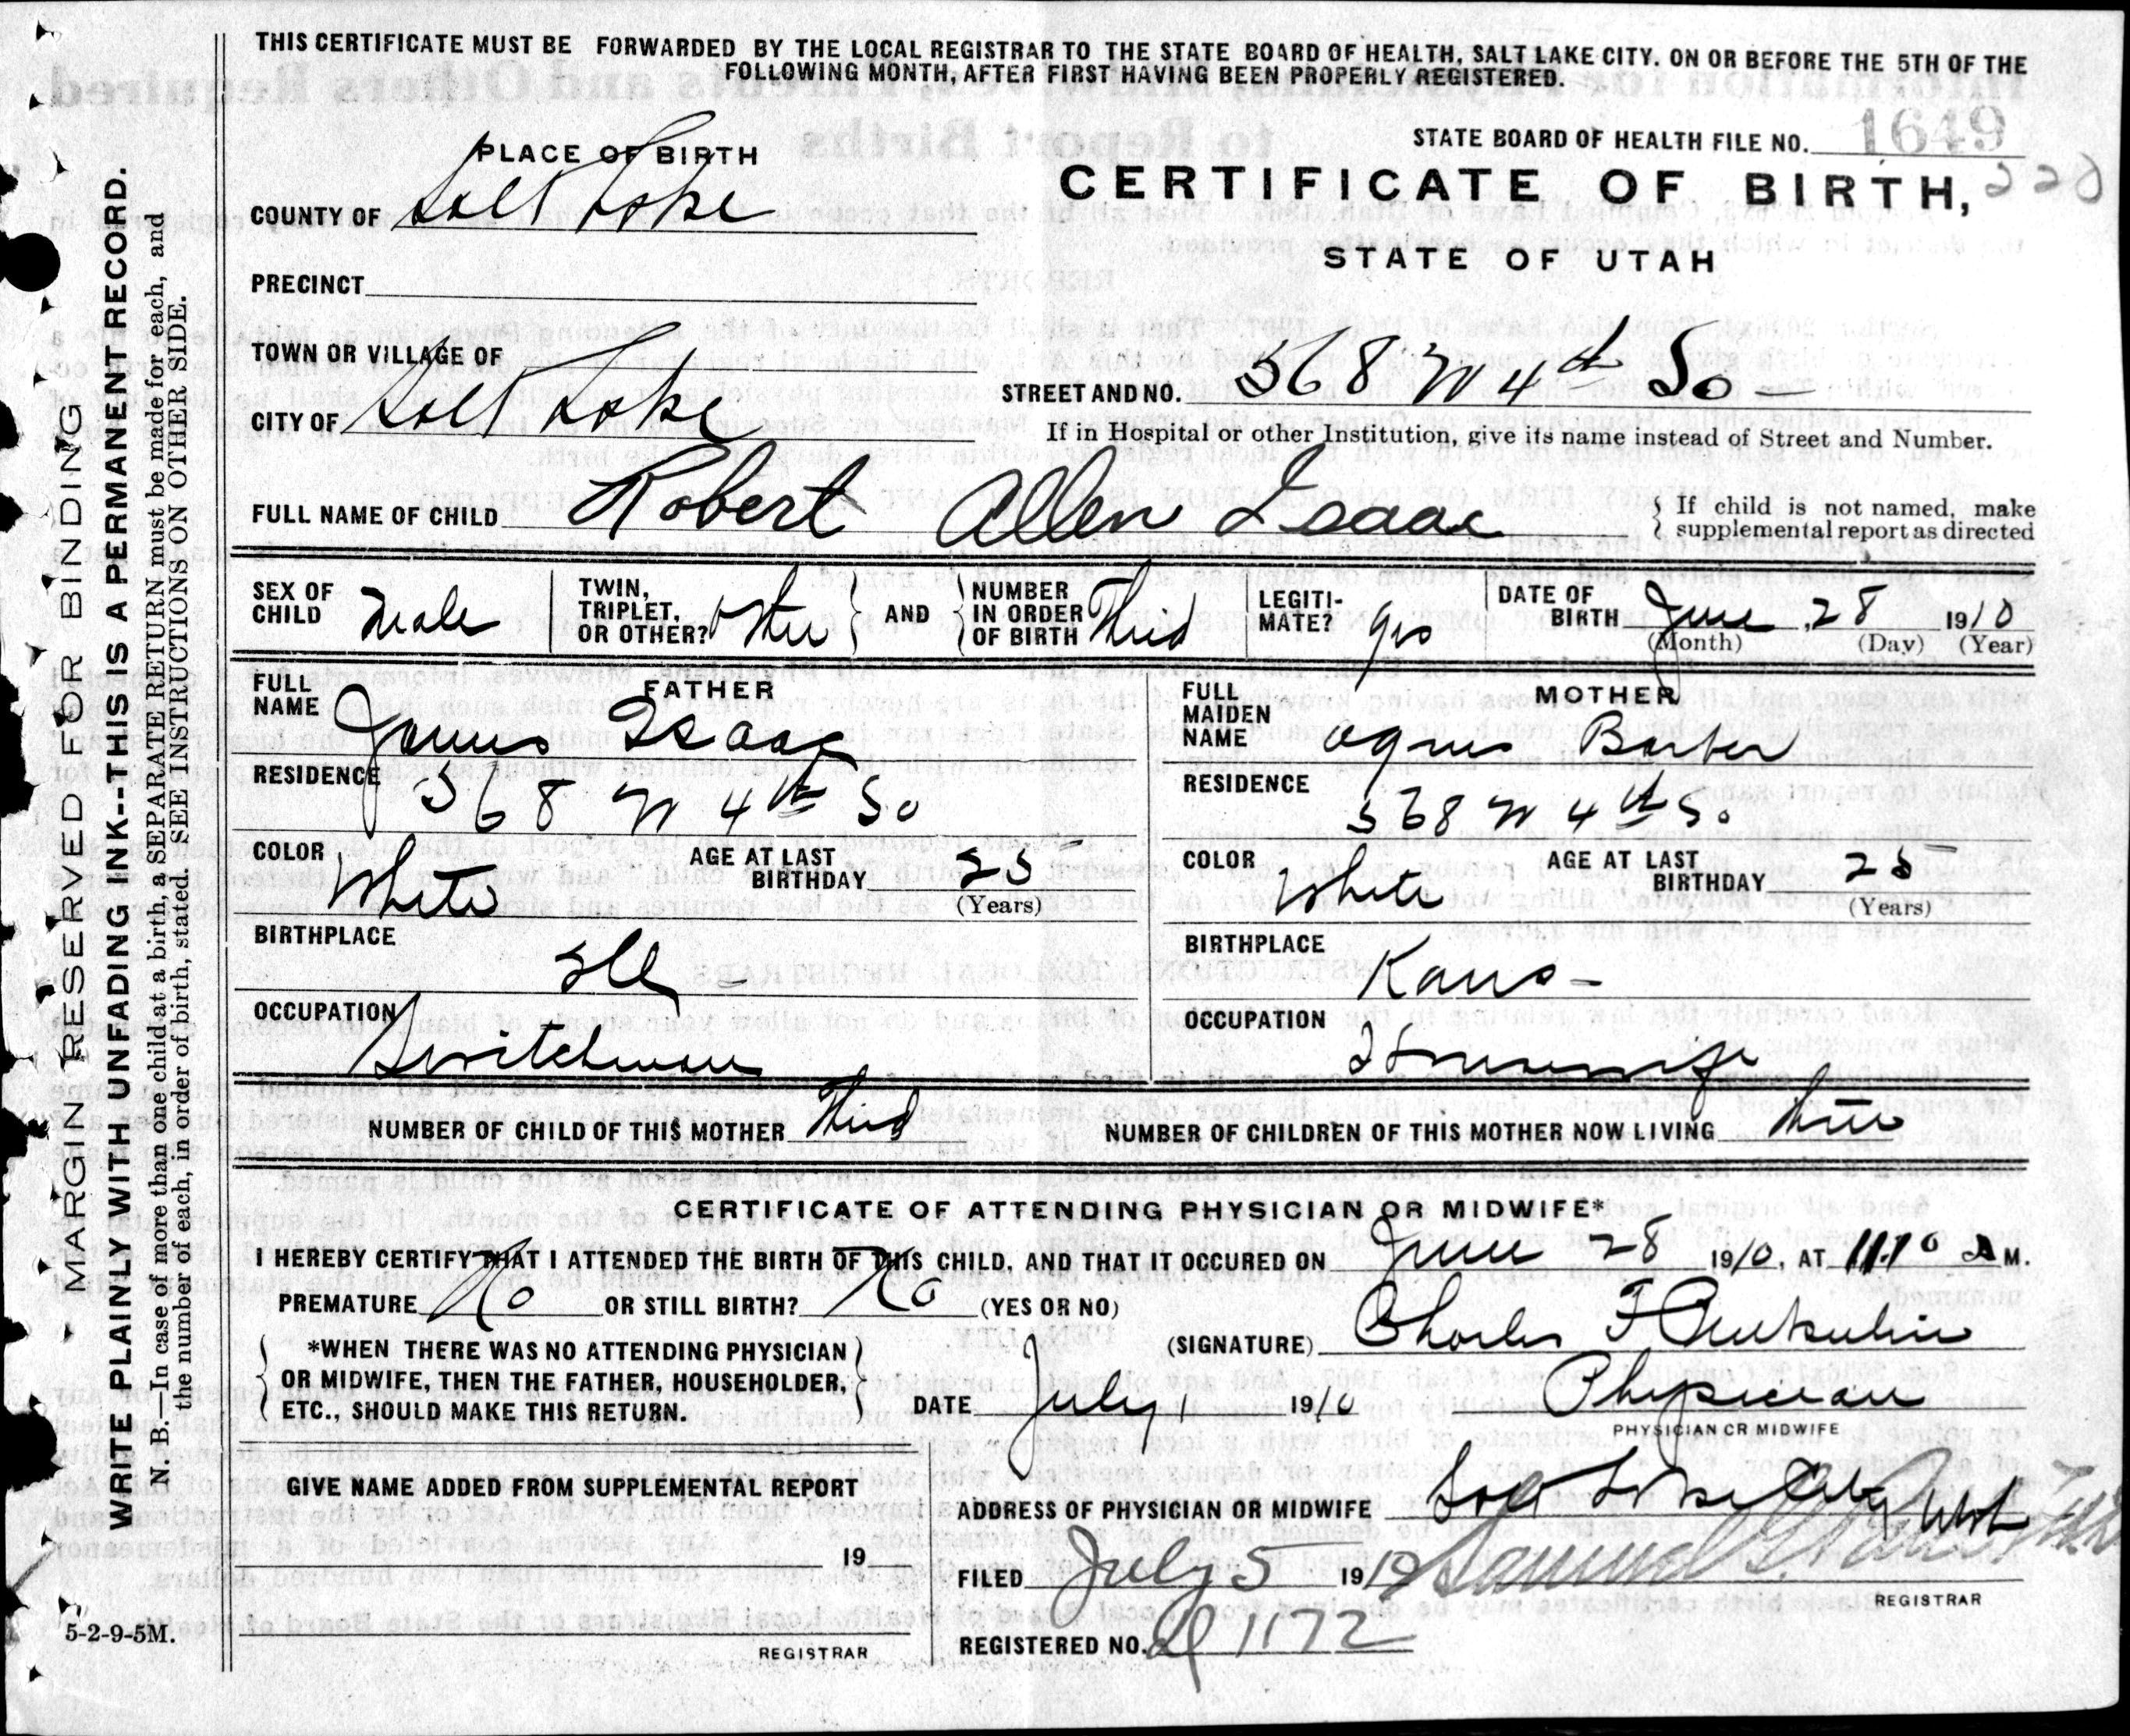 THIS CERTIFICATE MUST BE FORWARDED BY THE LOCAL REGISTRAR TO THE STATE BOARD OF HEALTH, SALT LAKE CITY. ON OR BEFORE THE 5TH OF THE
FOLLOWING MONTH, AFTER FIRST HAVING BEEN PROPERLY REGISTERED.
STATE BOARD OF HEALTH FILE NO. 1649
PLACE OF BIRTH
CERTIFICATE OF BIRTH, 228
COUNTY OF Salt Lake
STATE OF UTAH
PRECINCT
TOWN OR VILLAGE OF
STREET AND NO. 568 W 4th So
CITY OF Salt Lake
If in Hospital or other Institution, give its name instead of Street and Number.
FULL NAME OF CHILD Robert Allen Isaac
{ If child is not named, make
supplemental report as directed
SEX OF CHILD Male
TWIN, TRIPLET, OR OTHER? other
AND
NUMBER IN ORDER OF BIRTH Third
LEGITI-MATE? yes
DATE OF BIRTH June 28 1910
(Month) (Day) (Year)
FATHER
FULL NAME James Isaac
RESIDENCE 568 W 4th So
COLOR White
AGE AT LAST BIRTHDAY 25
(Years)
BIRTHPLACE Ill
OCCUPATION Switchman
MOTHER
FULL MAIDEN NAME Agnes Barber
RESIDENCE 568 W 4th So
COLOR White
AGE AT LAST BIRTHDAY 25
(Years)
BIRTHPLACE Kans
OCCUPATION Housewife
NUMBER OF CHILD OF THIS MOTHER Third
NUMBER OF CHILDREN OF THIS MOTHER NOW LIVING three
CERTIFICATE OF ATTENDING PHYSICIAN OR MIDWIFE*
I HEREBY CERTIFY THAT I ATTENDED THE BIRTH OF THIS CHILD, AND THAT IT OCCURED ON June 28 1910, AT 11.10 A M.
PREMATURE No OR STILL BIRTH? No (YES OR NO)
(SIGNATURE) Charles F
*WHEN THERE WAS NO ATTENDING PHYSICIAN
OR MIDWIFE, THEN THE FATHER, HOUSEHOLDER,
ETC., SHOULD MAKE THIS RETURN.
DATE July 1 1910
Physician
PHYSICIAN OR MIDWIFE
GIVE NAME ADDED FROM SUPPLEMENTAL REPORT
19
REGISTRAR
ADDRESS OF PHYSICIAN OR MIDWIFE Salt Lake City Utah
FILED July 5 1910 Samuel G.
REGISTRAR
REGISTERED NO. 1172
5-2-9-5M.
MARGIN RESERVED FOR BINDING
WRITE PLAINLY WITH UNFADING INK--THIS IS A PERMANENT RECORD.
N. B.—In case of more than one child at a birth, a SEPARATE RETURN must be made for each, and
the number of each, in order of birth, stated. SEE INSTRUCTIONS ON OTHER SIDE.